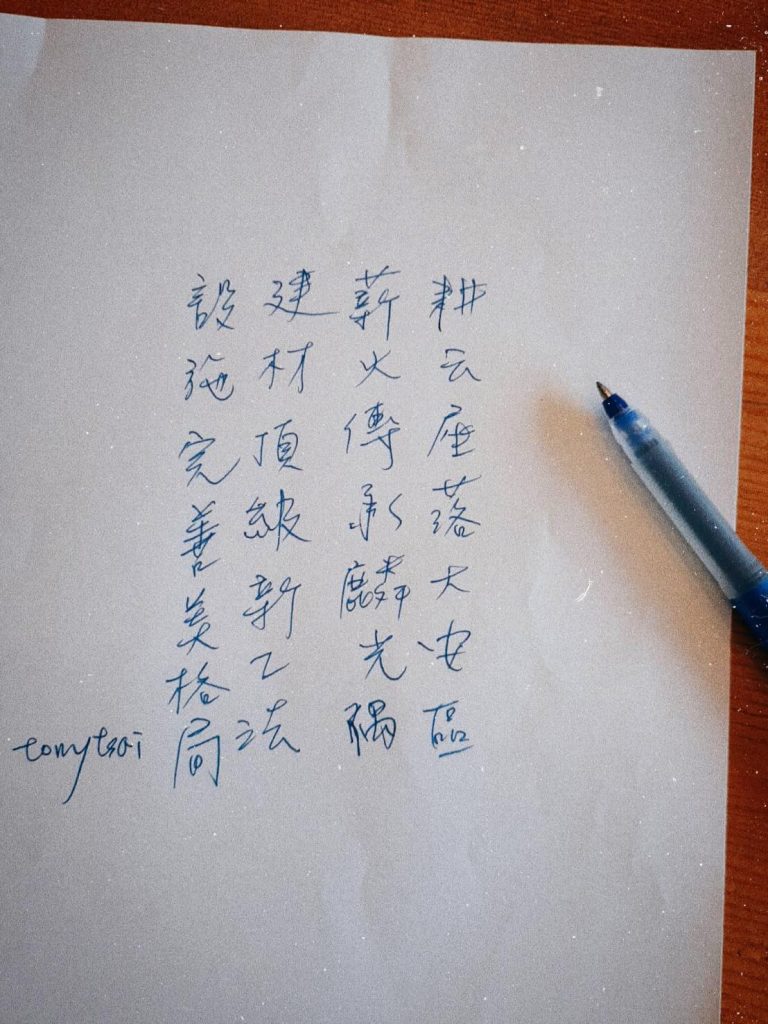 耕云座落大安區
薪火傳承麟光隅
建材頂級新工法
設施完善美格局
tonytsai